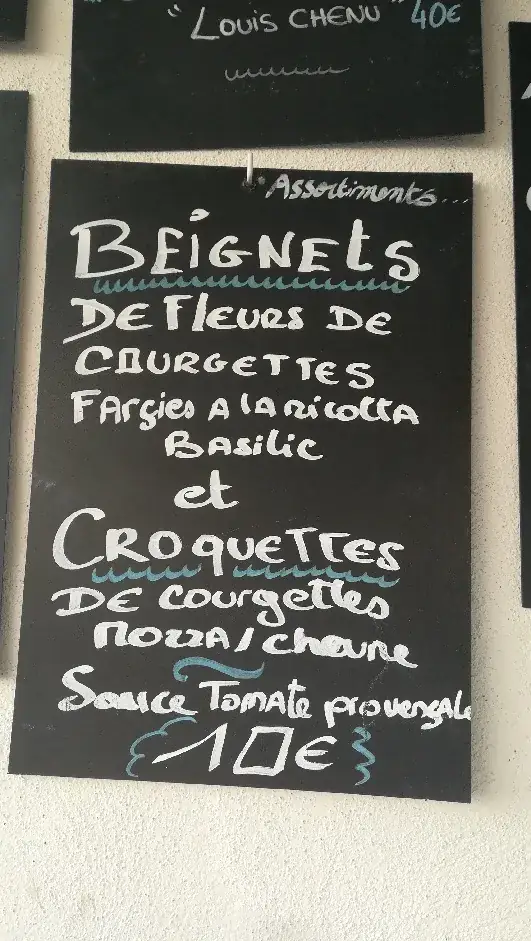 "Louis CHENU" 40€
Assortiments...
BEIGNETS
DE FlEURS DE
COURGETTES
FARÇies A lA RicottA
BASilic
et
CROQUETTES
DE Courgettes
MOZZA / chèvre
Sauce TOMAte provençAle
10€